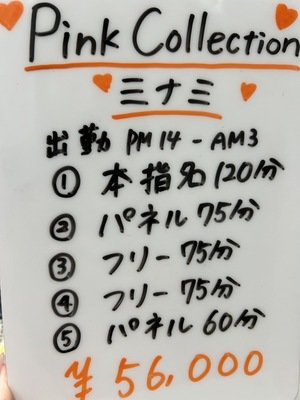 Pink Collection
ミナミ
出勤 PM14-AM3
① 本指名120分
② パネル 75分
③ フリー 75分
④ フリー 75分
⑤ パネル 60分
¥56,000